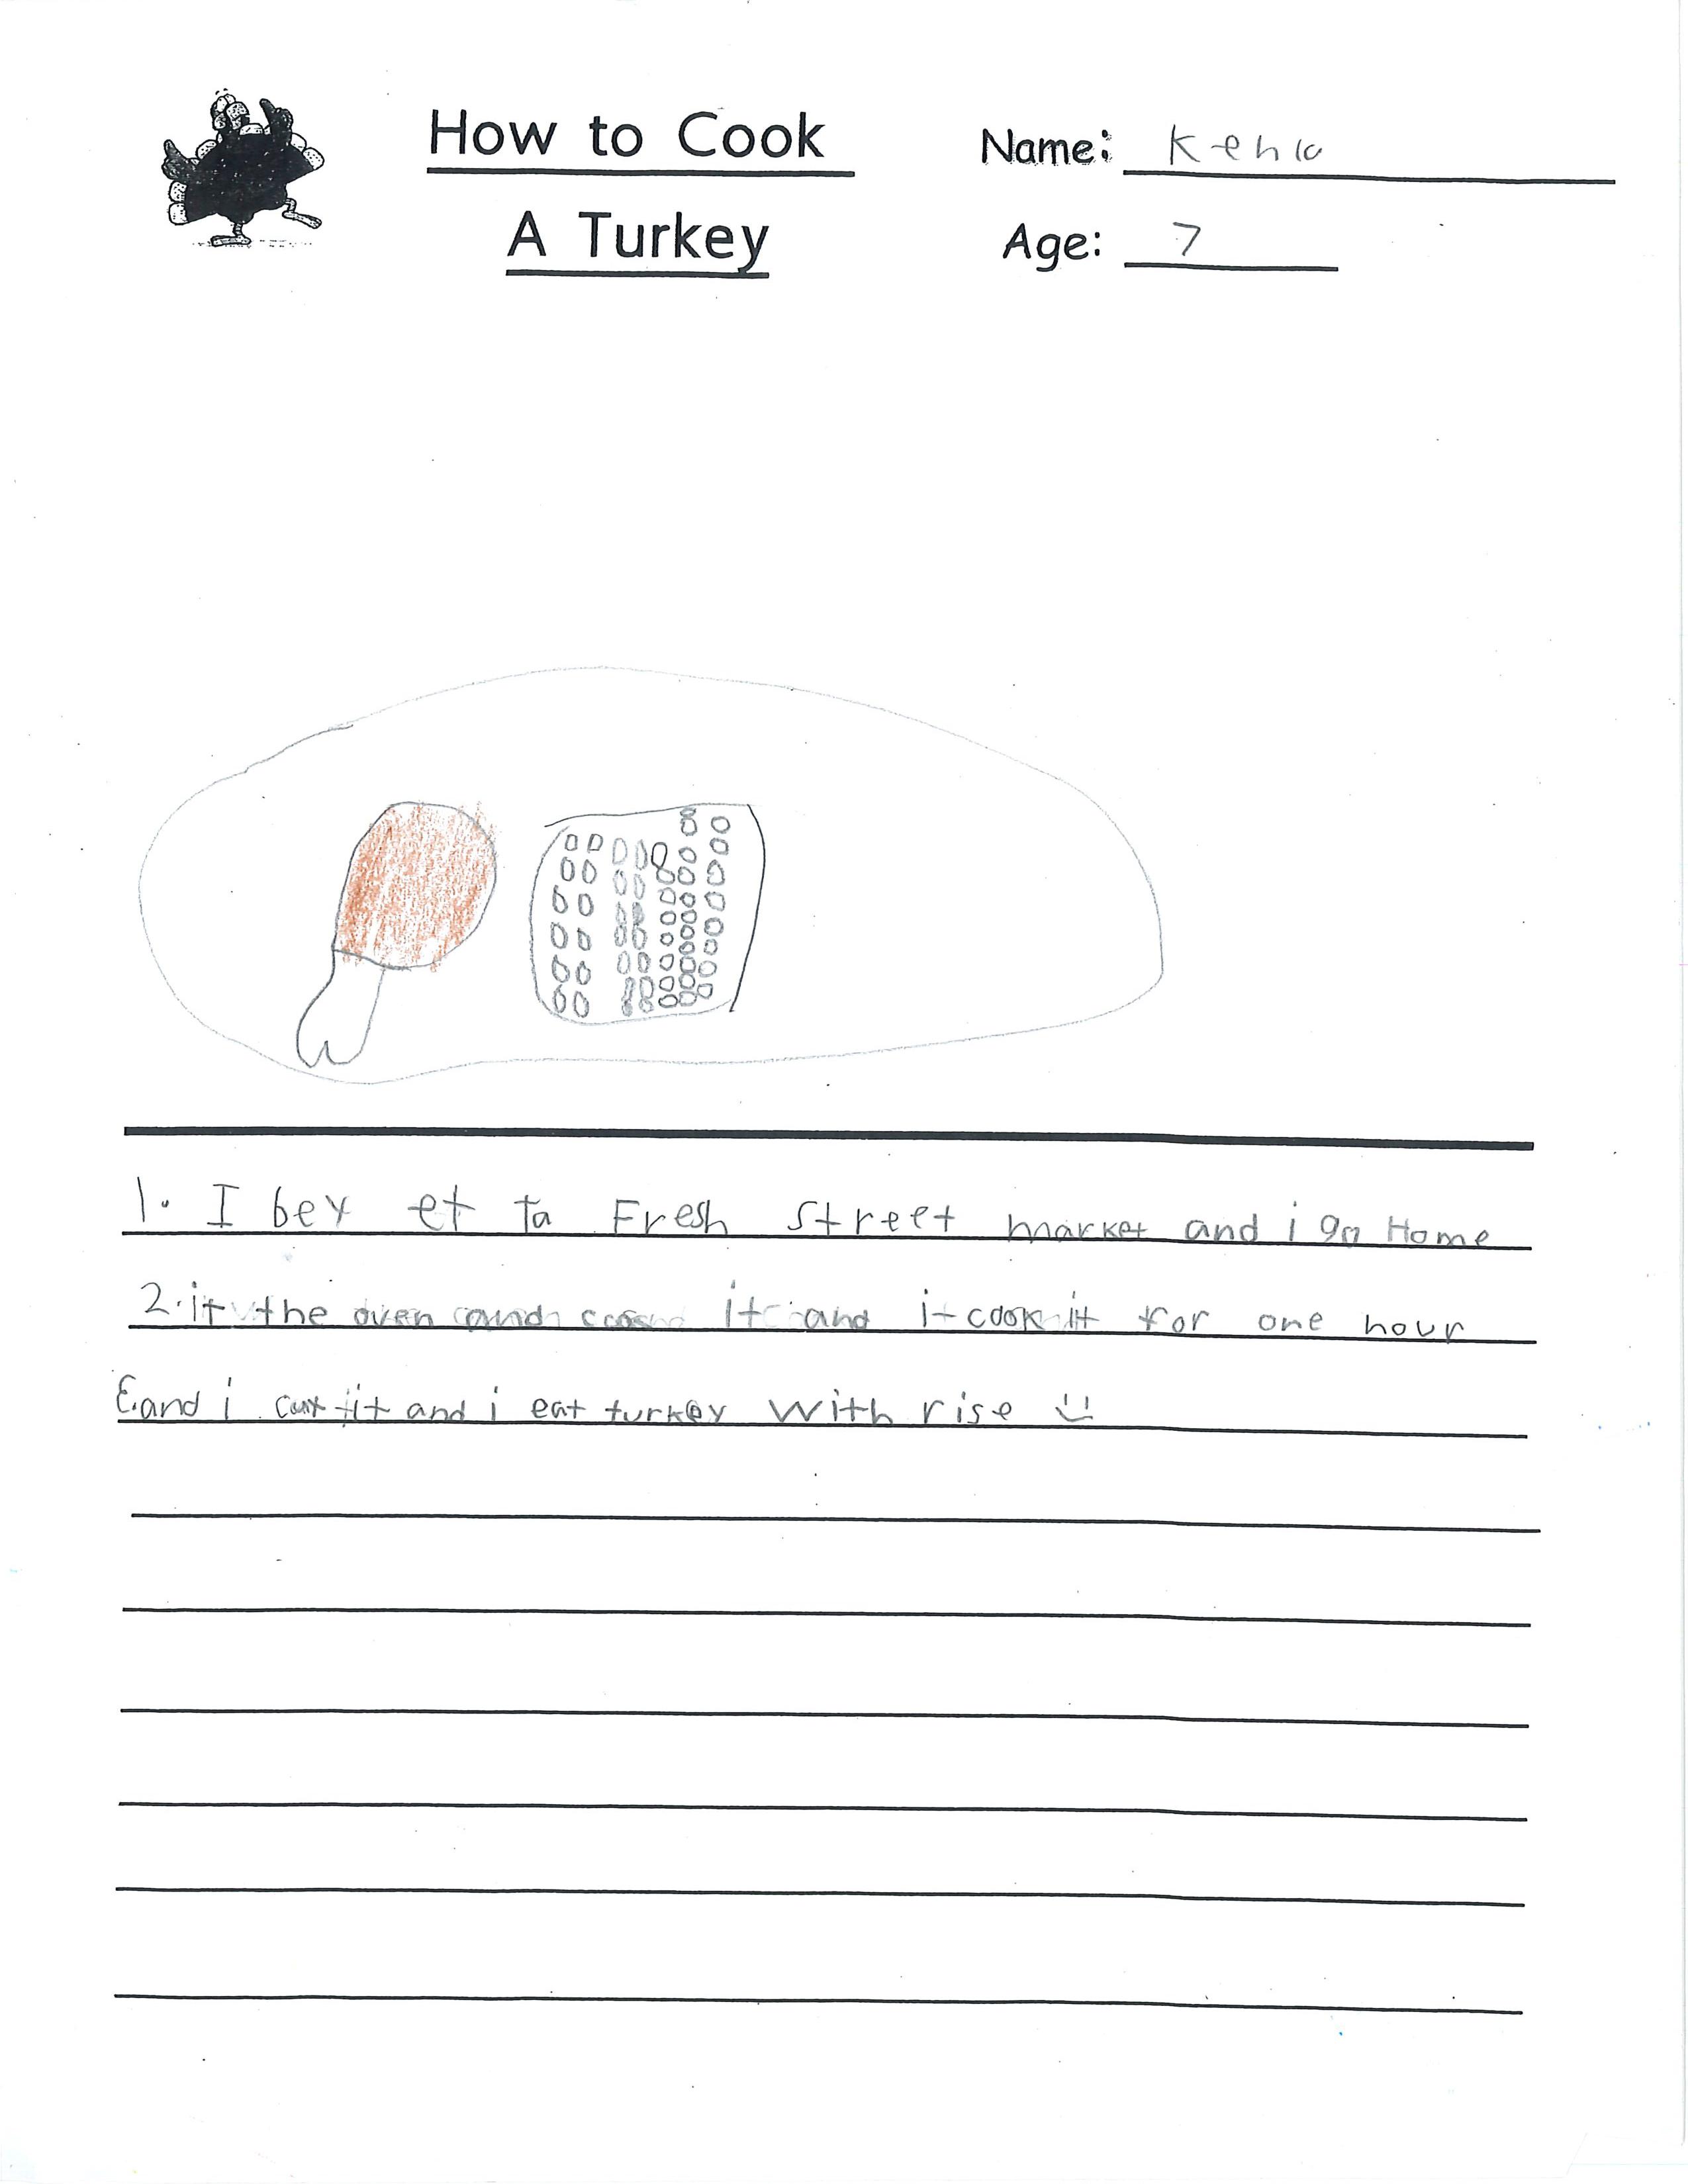 How to Cook
A Turkey
Name: Kenta
Age: 7
1. I bey et ta Fresh street market and i go Home
2. it the oven and it and it cook it for one hour
3. and i cut it and i eat turkey with rise